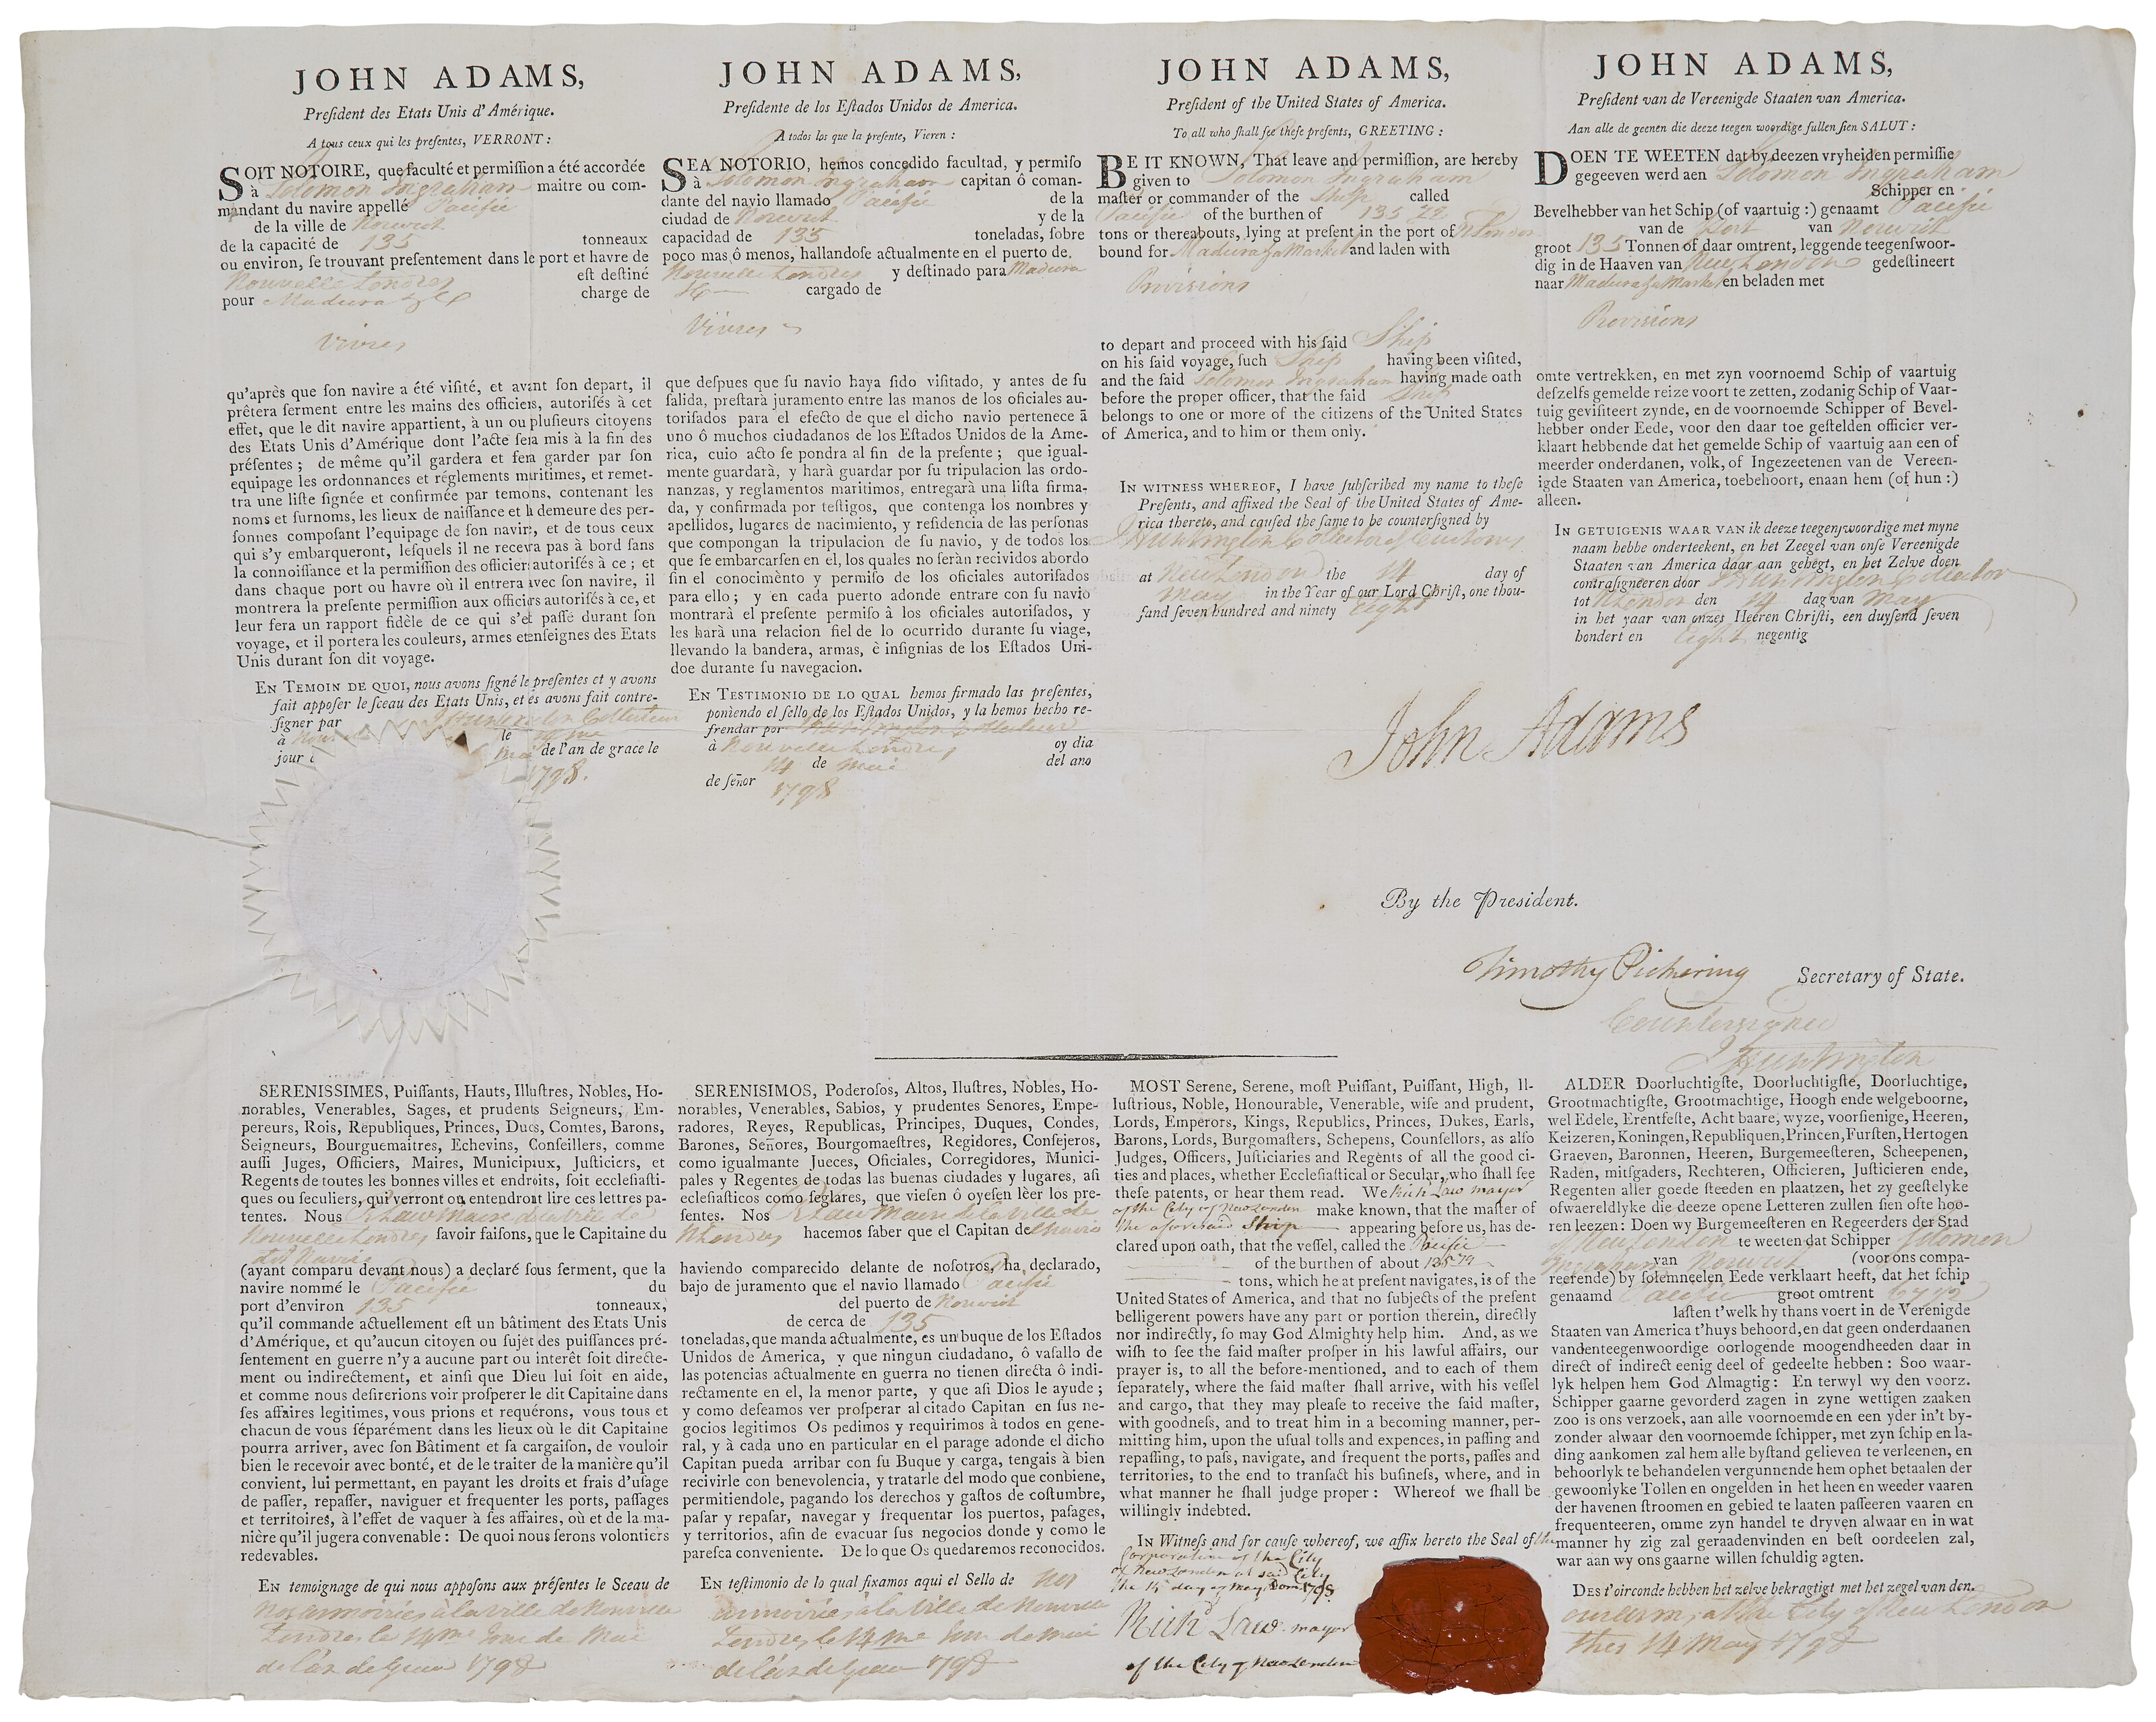 JOHN ADAMS,
Preſident des Etats Unis d'Amérique.
A tous ceux qui les preſentes, VERRONT:
SOIT NOTOIRE, que faculté et permiſſion a été accordée
à Solomon Ingraham maitre ou com-
mandant du navire appellé Pacific
de la ville de Norwich
de la capacité de 135 tonneaux
ou environ, ſe trouvant preſentement dans le port et havre de
Nouvelle Londres eſt deſtiné
pour Madeira charge de
Vivres
qu'après que ſon navire a été viſité, et avant ſon depart, il
prêtera ſerment entre les mains des officiers, autoriſés à cet
effet, que le dit navire appartient, à un ou pluſieurs citoyens
des Etats Unis d'Amérique dont l'acte ſera mis à la fin des
préſentes; de même qu'il gardera et fera garder par ſon
equipage les ordonnances et réglements maritimes, et remet-
tra une liſte ſignée et confirmée par temons, contenant les
noms et ſurnoms, les lieux de naiſſance et la demeure des per-
ſonnes compoſant l'equipage de ſon navire, et de tous ceux
qui s'y embarqueront, leſquels il ne recevra pas à bord ſans
la connoiſſance et la permiſſion des officiers autoriſés à ce; et
dans chaque port ou havre où il entrera avec ſon navire, il
montrera la preſente permiſſion aux officiers autoriſés à ce, et
leur fera un rapport fidèle de ce qui s'eſt paſſé durant ſon
voyage, et il portera les couleurs, armes et enſeignes des Etats
Unis durant ſon dit voyage.
EN TEMOIN DE QUOI, nous avons ſigné le preſentes et y avons
fait appoſer le ſceau des Etats Unis, et es avons fait contre-
ſigner par J Huntington Collecteur
à le
jour Mai de l'an de grace le
1798.
JOHN ADAMS,
Preſidente de los Eſtados Unidos de America.
A todos los que la preſente, Vieren:
SEA NOTORIO, hemos concedido facultad, y permiſo
à Solomon Ingraham capitan ô coman-
dante del navio llamado Pacific de la
ciudad de Norwich y de la
capacidad de 135 toneladas, ſobre
poco mas ô menos, hallandoſe actualmente en el puerto de
Nouvelle Londres y deſtinado para Madeira
&c cargado de
Vivres
que deſpues que ſu navio haya ſido viſitado, y antes de ſu
ſalida, preſtarà juramento entre las manos de los oficiales au-
toriſados para el efecto de que el dicho navio pertenece ā
uno ô muchos ciudadanos de los Eſtados Unidos de la Ame-
rica, cuio acto ſe pondra al fin de la preſente; que igual-
mente guardarà, y harà guardar por ſu tripulacion las ordo-
nanzas, y reglamentos maritimos, entregarà una liſta firma-
da, y confirmada por teſtigos, que contenga los nombres y
apellidos, lugares de nacimiento, y reſidencia de las perſonas
que compongan la tripulacion de ſu navio, y de todos los
que ſe embarcarſen en el, los quales no ſeràn recividos abordo
ſin el conocimènto y permiſo de los oficiales autoriſados
para ello; y en cada puerto adonde entrare con ſu navio
montrarà el preſente permiſo à los oficiales autoriſados, y
les harà una relacion fiel de lo ocurrido durante ſu viage,
llevando la bandera, armas, è inſignias de los Eſtados Uni-
doe durante ſu navegacion.
EN TESTIMONIO DE LO QUAL hemos firmado las preſentes,
poniendo el ſello de los Eſtados Unidos, y la hemos hecho re-
frendar por J Huntington Collecteur
à Nouvelle Londres oy dia
14 de Mai del ano
de ſeñor 1798
JOHN ADAMS,
Preſident of the United States of America.
To all who ſhall ſee theſe preſents, GREETING:
BE IT KNOWN, That leave and permiſſion, are hereby
given to Solomon Ingraham
maſter or commander of the Ship called
Pacific of the burthen of 135 72
tons or thereabouts, lying at preſent in the port of N London
bound for Madeira & a Market and laden with
Provisions
to depart and proceed with his ſaid Ship
on his ſaid voyage, ſuch Ship having been viſited,
and the ſaid Solomon Ingraham having made oath
before the proper officer, that the ſaid Ship
belongs to one or more of the citizens of the United States
of America, and to him or them only.
IN WITNESS WHEREOF, I have ſubſcribed my name to theſe
Preſents, and affixed the Seal of the United States of Ame-
rica thereto, and cauſed the ſame to be counterſigned by
J Huntington Collector of Customs
at New London the 14 day of
May in the Year of our Lord Chriſt, one thou-
ſand ſeven hundred and ninety eight
JOHN ADAMS,
Preſident van de Vereenigde Staaten van America.
Aan alle de geenen die deeze teegen woordige ſullen ſien SALUT:
DOEN TE WEETEN dat by deezen vryheiden permiſſie
gegeeven werd aen Solomon Ingraham
Schipper en
Bevelhebber van het Schip (of vaartuig:) genaamt Pacific
van de Port van Norwich
groot 135 Tonnen of daar omtrent, leggende teegenſwoor-
dig in de Haaven van New London gedeſtineert
naar Madeira & a Market en beladen met
Provisions
omte vertrekken, en met zyn voornoemd Schip of vaartuig
deſzelfs gemelde reize voort te zetten, zodanig Schip of Vaar-
tuig geviſiteert zynde, en de voornoemde Schipper of Bevel-
hebber onder Eede, voor den daar toe geſtelden officier ver-
klaart hebbende dat het gemelde Schip of vaartuig aan een of
meerder onderdanen, volk, of Ingezeetenen van de Vereen-
igde Staaten van America, toebehoort, enaan hem (of hun:)
alleen.
IN GETUIGENIS WAAR VAN ik deeze teegenſwoordige met myne
naam hebbe onderteekent, en het Zeegel van onſe Vereenigde
Staaten van America daar aan gehegt, en het Zelve doen
contraſigneeren door J Huntington Collector
tot N London den 14 dag van May
in het yaar van onzes Heeren Chriſti, een duyſend ſeven
hondert en eight negentig
John Adams
By the President.
Timothy Pickering Secretary of State.
Countersigned
J Huntington
SERENISSIMES, Puiſſants, Hauts, Illuſtres, Nobles, Ho-
norables, Venerables, Sages, et prudents Seigneurs, Em-
pereurs, Rois, Republiques, Princes, Ducs, Comtes, Barons,
Seigneurs, Bourguemaitres, Echevins, Conſeillers, comme
auſſi Juges, Officiers, Maires, Municipaux, Juſticiers, et
Regents de toutes les bonnes villes et endroits, ſoit eccleſiaſti-
ques ou ſeculiers, qui verront ou entendront lire ces lettres pa-
tentes. Nous R Law Maire de la Ville de
Nouvelle Londres ſavoir faiſons, que le Capitaine du
dit Navire
(ayant comparu devant nous) a declaré ſous ferment, que la
navire nommé le Pacific du
port d'environ 135 tonneaux,
qu'il commande actuellement eſt un bâtiment des Etats Unis
d'Amérique, et qu'aucun citoyen ou ſujet des puiſſances pré-
ſentement en guerre n'y a aucune part ou interêt ſoit directe-
ment ou indirectement, et ainſi que Dieu lui ſoit en aide,
et comme nous deſirerions voir proſperer le dit Capitaine dans
ſes affaires legitimes, vous prions et requérons, vous tous et
chacun de vous ſéparément dans les lieux où le dit Capitaine
pourra arriver, avec ſon Bâtiment et ſa cargaiſon, de vouloir
bien le recevoir avec bonté, et de le traiter de la manière qu'il
convient, lui permettant, en payant les droits et frais d'uſage
de paſſer, repaſſer, naviguer et frequenter les ports, paſſages
et territoires, à l'effet de vaquer à ſes affaires, où et de la ma-
nière qu'il jugera convenable: De quoi nous ſerons volontiers
redevables.
EN temoignage de qui nous appoſons aux préſentes le Sceau de
Nos armoiries à la ville de Nouvelle
Londres le 14me Jour de Mai
de l'an de Grace 1798
SERENISIMOS, Poderoſos, Altos, Iluſtres, Nobles, Ho-
norables, Venerables, Sabios, y prudentes Senores, Empe-
radores, Reyes, Republicas, Principes, Duques, Condes,
Barones, Señores, Bourgomaeſtres, Regidores, Conſejeros,
como igualmante Jueces, Oficiales, Corregidores, Munici-
pales y Regentes de todas las buenas ciudades y lugares, aſi
eclefiaſticos como ſeglares, que vieſen ô oyeſen lèer los pre-
ſentes. Nos R Law Maire de la Ville de
N Londres hacemos ſaber que el Capitan de Navire
haviendo comparecido delante de noſotros, ha declarado,
bajo de juramento que el navio llamado Pacific
del puerto de Norwich
de cerca de 135
toneladas, que manda actualmente, es un buque de los Eſtados
Unidos de America, y que ningun ciudadano, ô vaſallo de
las potencias actualmente en guerra no tienen directa ô indi-
rectamente en el, la menor parte, y que aſi Dios le ayude;
y como deſeamos ver proſperar al citado Capitan en ſus ne-
gocios legitimos Os pedimos y requirimos à todos en gene-
ral, y à cada uno en particular en el parage adonde el dicho
Capitan pueda arribar con ſu Buque y carga, tengais à bien
recivirle con benevolencia, y tratarle del modo que conbiene,
permitiendole, pagando los derechos y gaſtos de coſtumbre,
paſar y repaſar, navegar y frequentar los puertos, paſages,
y territorios, afin de evacuar ſus negocios donde y como le
pareſca conveniente. De lo que Os quedaremos reconocidos.
EN teſtimonio de lo qual fixamos aqui el Sello de Nos
armoiries, à la Ville de Nouvelle
Londres le 14me Jour de Mai
de l'an de Grace 1798
MOST Serene, Serene, moſt Puiſſant, Puiſſant, High, Il-
luſtrious, Noble, Honourable, Venerable, wiſe and prudent,
Lords, Emperors, Kings, Republics, Princes, Dukes, Earls,
Barons, Lords, Burgomaſters, Schepens, Counſellors, as alſo
Judges, Officers, Juſticiaries and Regents of all the good ci-
ties and places, whether Eccleſiaſtical or Secular, who ſhall ſee
theſe patents, or hear them read. We Richd Law mayor
of the City of New London make known, that the maſter of
the aforesaid Ship appearing before us, has de-
clared upon oath, that the veſſel, called the Pacific
of the burthen of about 135 72
tons, which he at preſent navigates, is of the
United States of America, and that no ſubjects of the preſent
belligerent powers have any part or portion therein, directly
nor indirectly, ſo may God Almighty help him. And, as we
wiſh to ſee the ſaid maſter proſper in his lawful affairs, our
prayer is, to all the before-mentioned, and to each of them
ſeparately, where the ſaid maſter ſhall arrive, with his veſſel
and cargo, that they may pleaſe to receive the ſaid maſter,
with goodneſs, and to treat him in a becoming manner, per-
mitting him, upon the uſual tolls and expences, in paſſing and
repaſſing, to paſs, navigate, and frequent the ports, paſſes and
territories, to the end to tranſact his buſineſs, where, and in
what manner he ſhall judge proper: Whereof we ſhall be
willingly indebted.
IN Witneſs and for cauſe whereof, we affix hereto the Seal of the
Corporation of the City
of New London at said City
the 15 day of May, Dom. 1798
Richd Law mayor
of the City of New London
ALDER Doorluchtigſte, Doorluchtigſte, Doorluchtige,
Grootmachtigſte, Grootmachtige, Hoogh ende welgeboorne,
wel Edele, Erentfeſte, Acht baare, wyze, voorſienige, Heeren,
Keizeren, Koningen, Republiquen, Princen, Furſten, Hertogen
Graeven, Baronnen, Heeren, Burgemeeſteren, Scheepenen,
Raden, mitſgaders, Rechteren, Officieren, Juſticieren ende,
Regenten aller goede ſteeden en plaatzen, het zy geeſtelyke
ofwaereldlyke die deeze opene Letteren zullen ſien ofte hoo-
ren leezen: Doen wy Burgemeeſteren en Regeerders der Stad
of New London te weeten dat Schipper Solomon
Ingraham van Norwich (voor ons compa-
reerende) by ſolemneelen Eede verklaart heeft, dat het ſchip
genaamd Pacific groot omtrent
laſten t'welk hy thans voert in de Verenigde
Staaten van America t'huys behoord, en dat geen onderdaanen
vandenteegenwoordige oorlogende moogendheeden daar in
direct of indirect eenig deel of gedeelte hebben: Soo waar-
lyk helpen hem God Almagtig: En terwyl wy den voorz.
Schipper gaarne gevorderd zagen in zyne wettigen zaaken
zoo is ons verzoek, aan alle voornoemde en een yder in't by-
zonder alwaar den voornoemde ſchipper, met zyn ſchip en la-
ding aankomen zal hem alle byſtand gelieven te verleenen, en
behoorlyk te behandelen vergunnende hem ophet betaalen der
gewoonlyke Tollen en ongelden in het heen en weeder vaaren
der havenen ſtroomen en gebied te laaten paſſeeren vaaren en
frequenteeren, omme zyn handel te dryven alwaar en in wat
manner hy zig zal geraadenvinden en beſt oordeelen zal,
war aan wy ons gaarne willen ſchuldig agten.
DES t'oirconde hebben het zelve bekragtigt met het zegel van den.
our arms, at the City of New London
this 14 May 1798